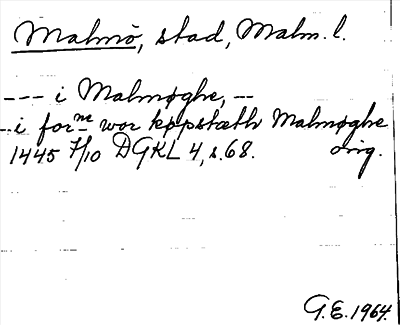 Malmö, stad, Malm. l.
--- i Malmøghe, --
-- i forne wor køpstæth Malmøghe
1445 7/10 DGKL 4, s. 68. orig.
G.E. 1964.